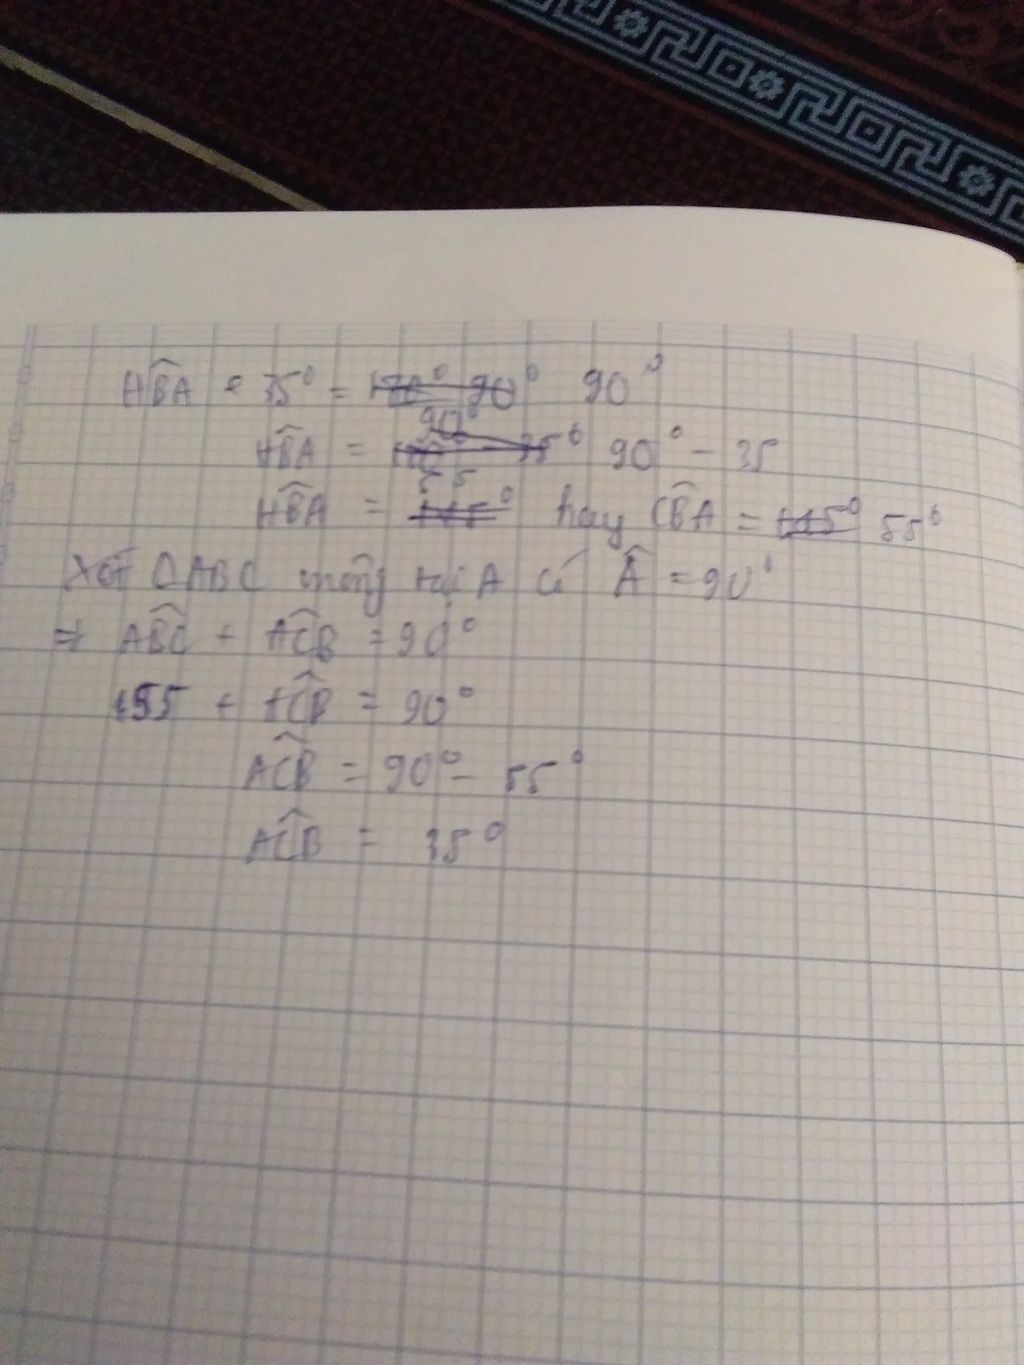 HBA + 35° = 90°
HBA = 90° - 35
HBA = 55° hay CBA = 55°
Xét ΔABC vuông tại A có Â = 90°
⇒ ABC + ACB = 90°
55 + ACB = 90°
ACB = 90° - 55°
ACB = 35°